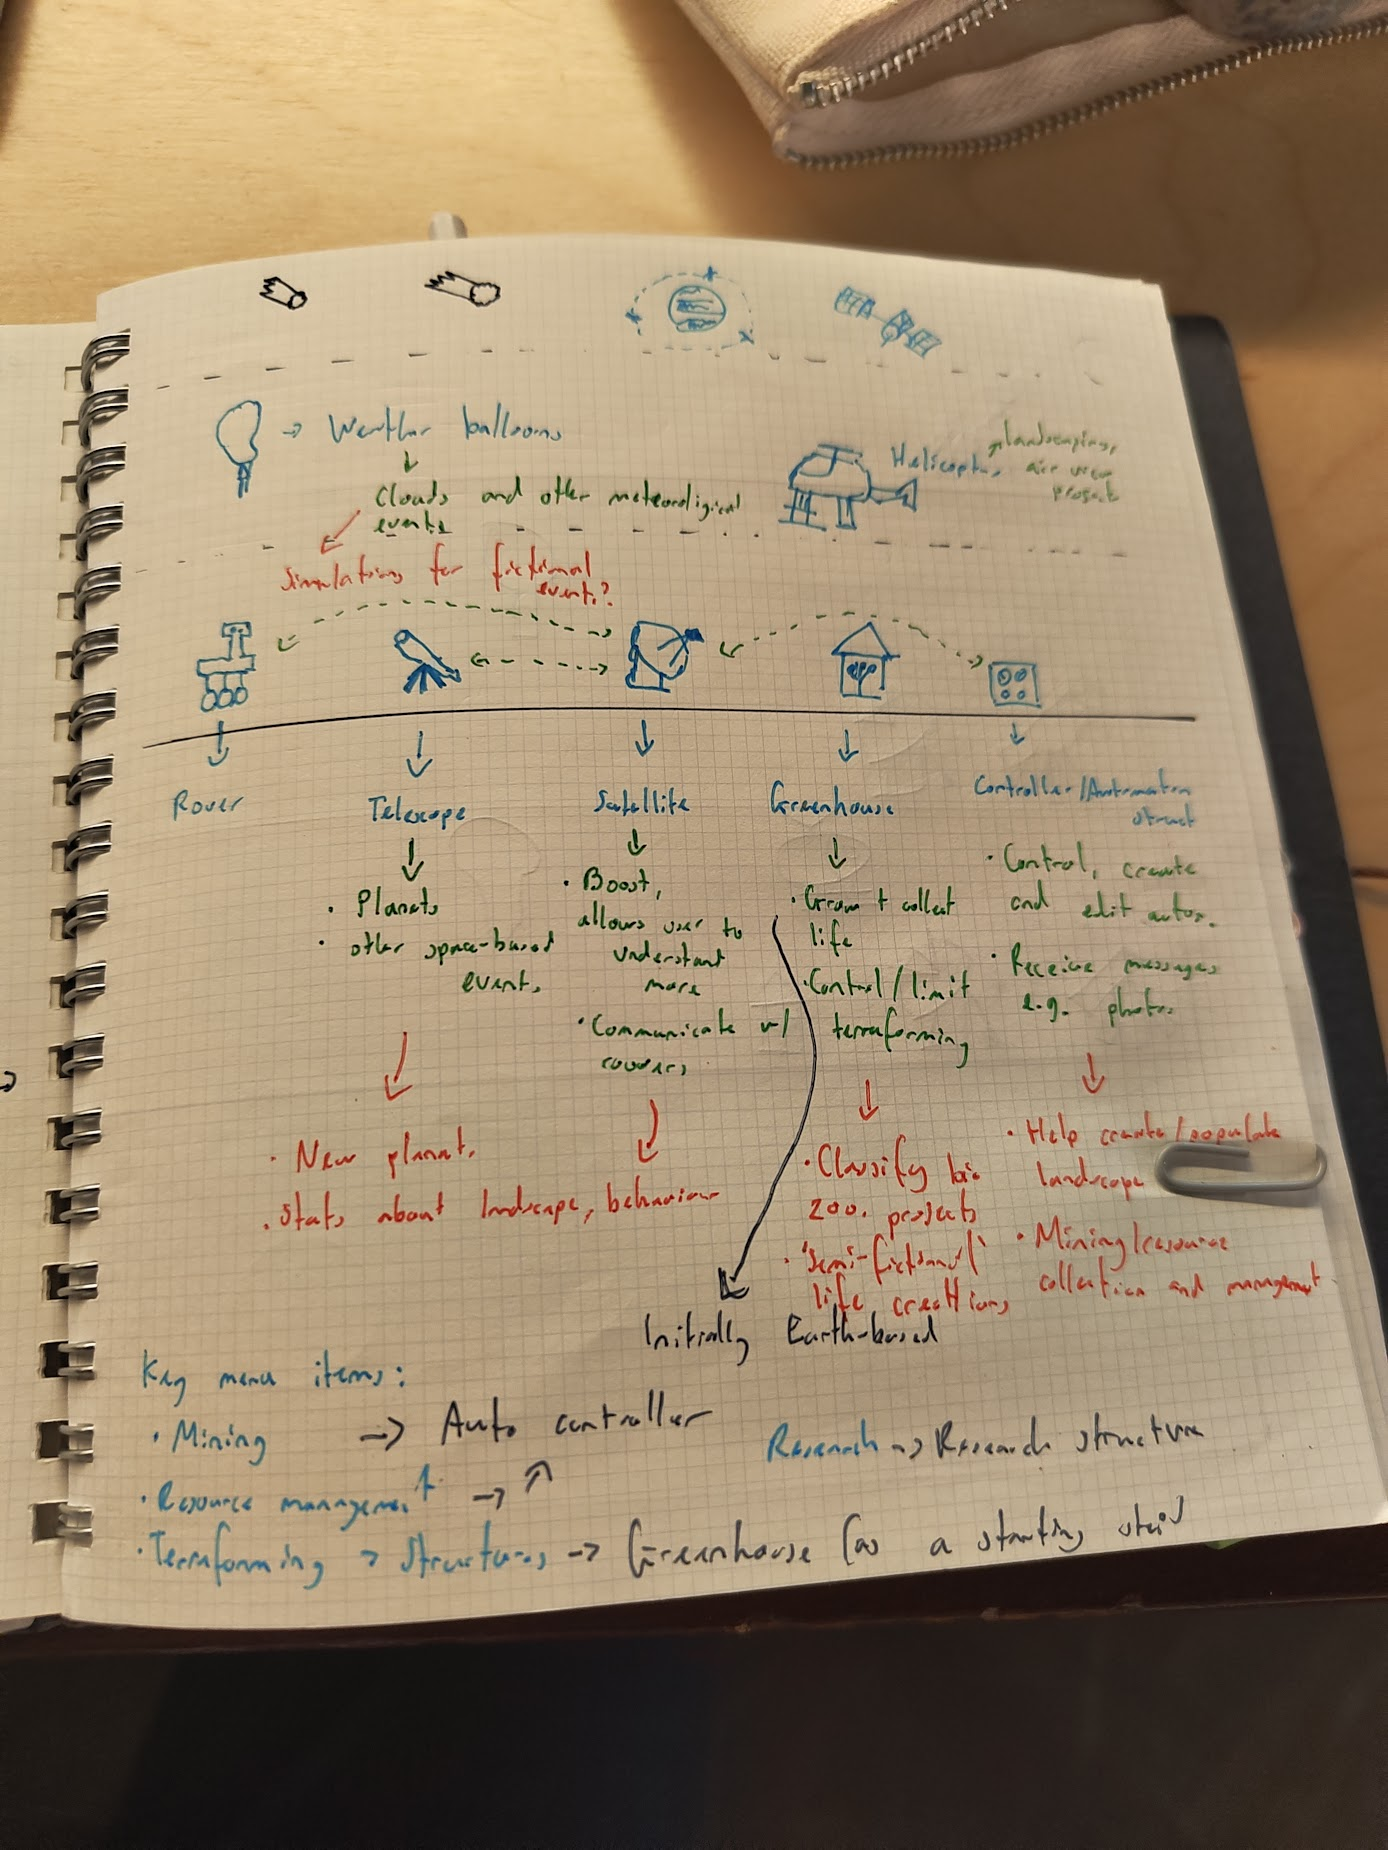 Weather balloons
Clouds and other meteorological
events
Simulations for fictional
events?
Helicopter
landscaping,
air
project
Rover
Telescope
Planets
other space-based
events
New planet
Stats about landscape, behaviour
Satellite
Boost,
allows user to
understand
more
Communicate w/
rovers
Greenhouse
Grow + collect
life
Control/limit
terraforming
Classify
zoo. projects
'Semi-fictional'
life creations
Initially Earth-based
Controller/Automation
struct
Control, create
and edit autos.
Receive messages
e.g. photos
Help create/populate
landscape
Mining/resource
collection and management
Key menu items:
Mining → Auto controller
Resource management →
Terraforming → Structures → Greenhouse (as a starting
Research → Research structure